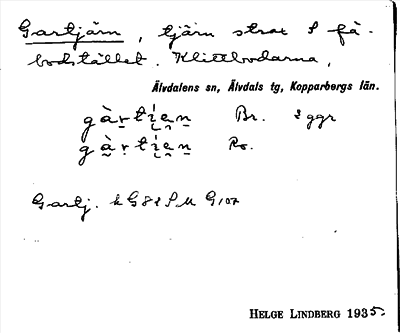 Gartjärn, tjärn strax S fä-
bodstället. Klittbodarna,
Älvdalens sn, Älvdals tg, Kopparbergs län.
gàrti̯e̯n Br. 2 ggr
gàrti̯e̯n Ro.
Gartj. k G 82 S M G 107
HELGE LINDBERG 1935.